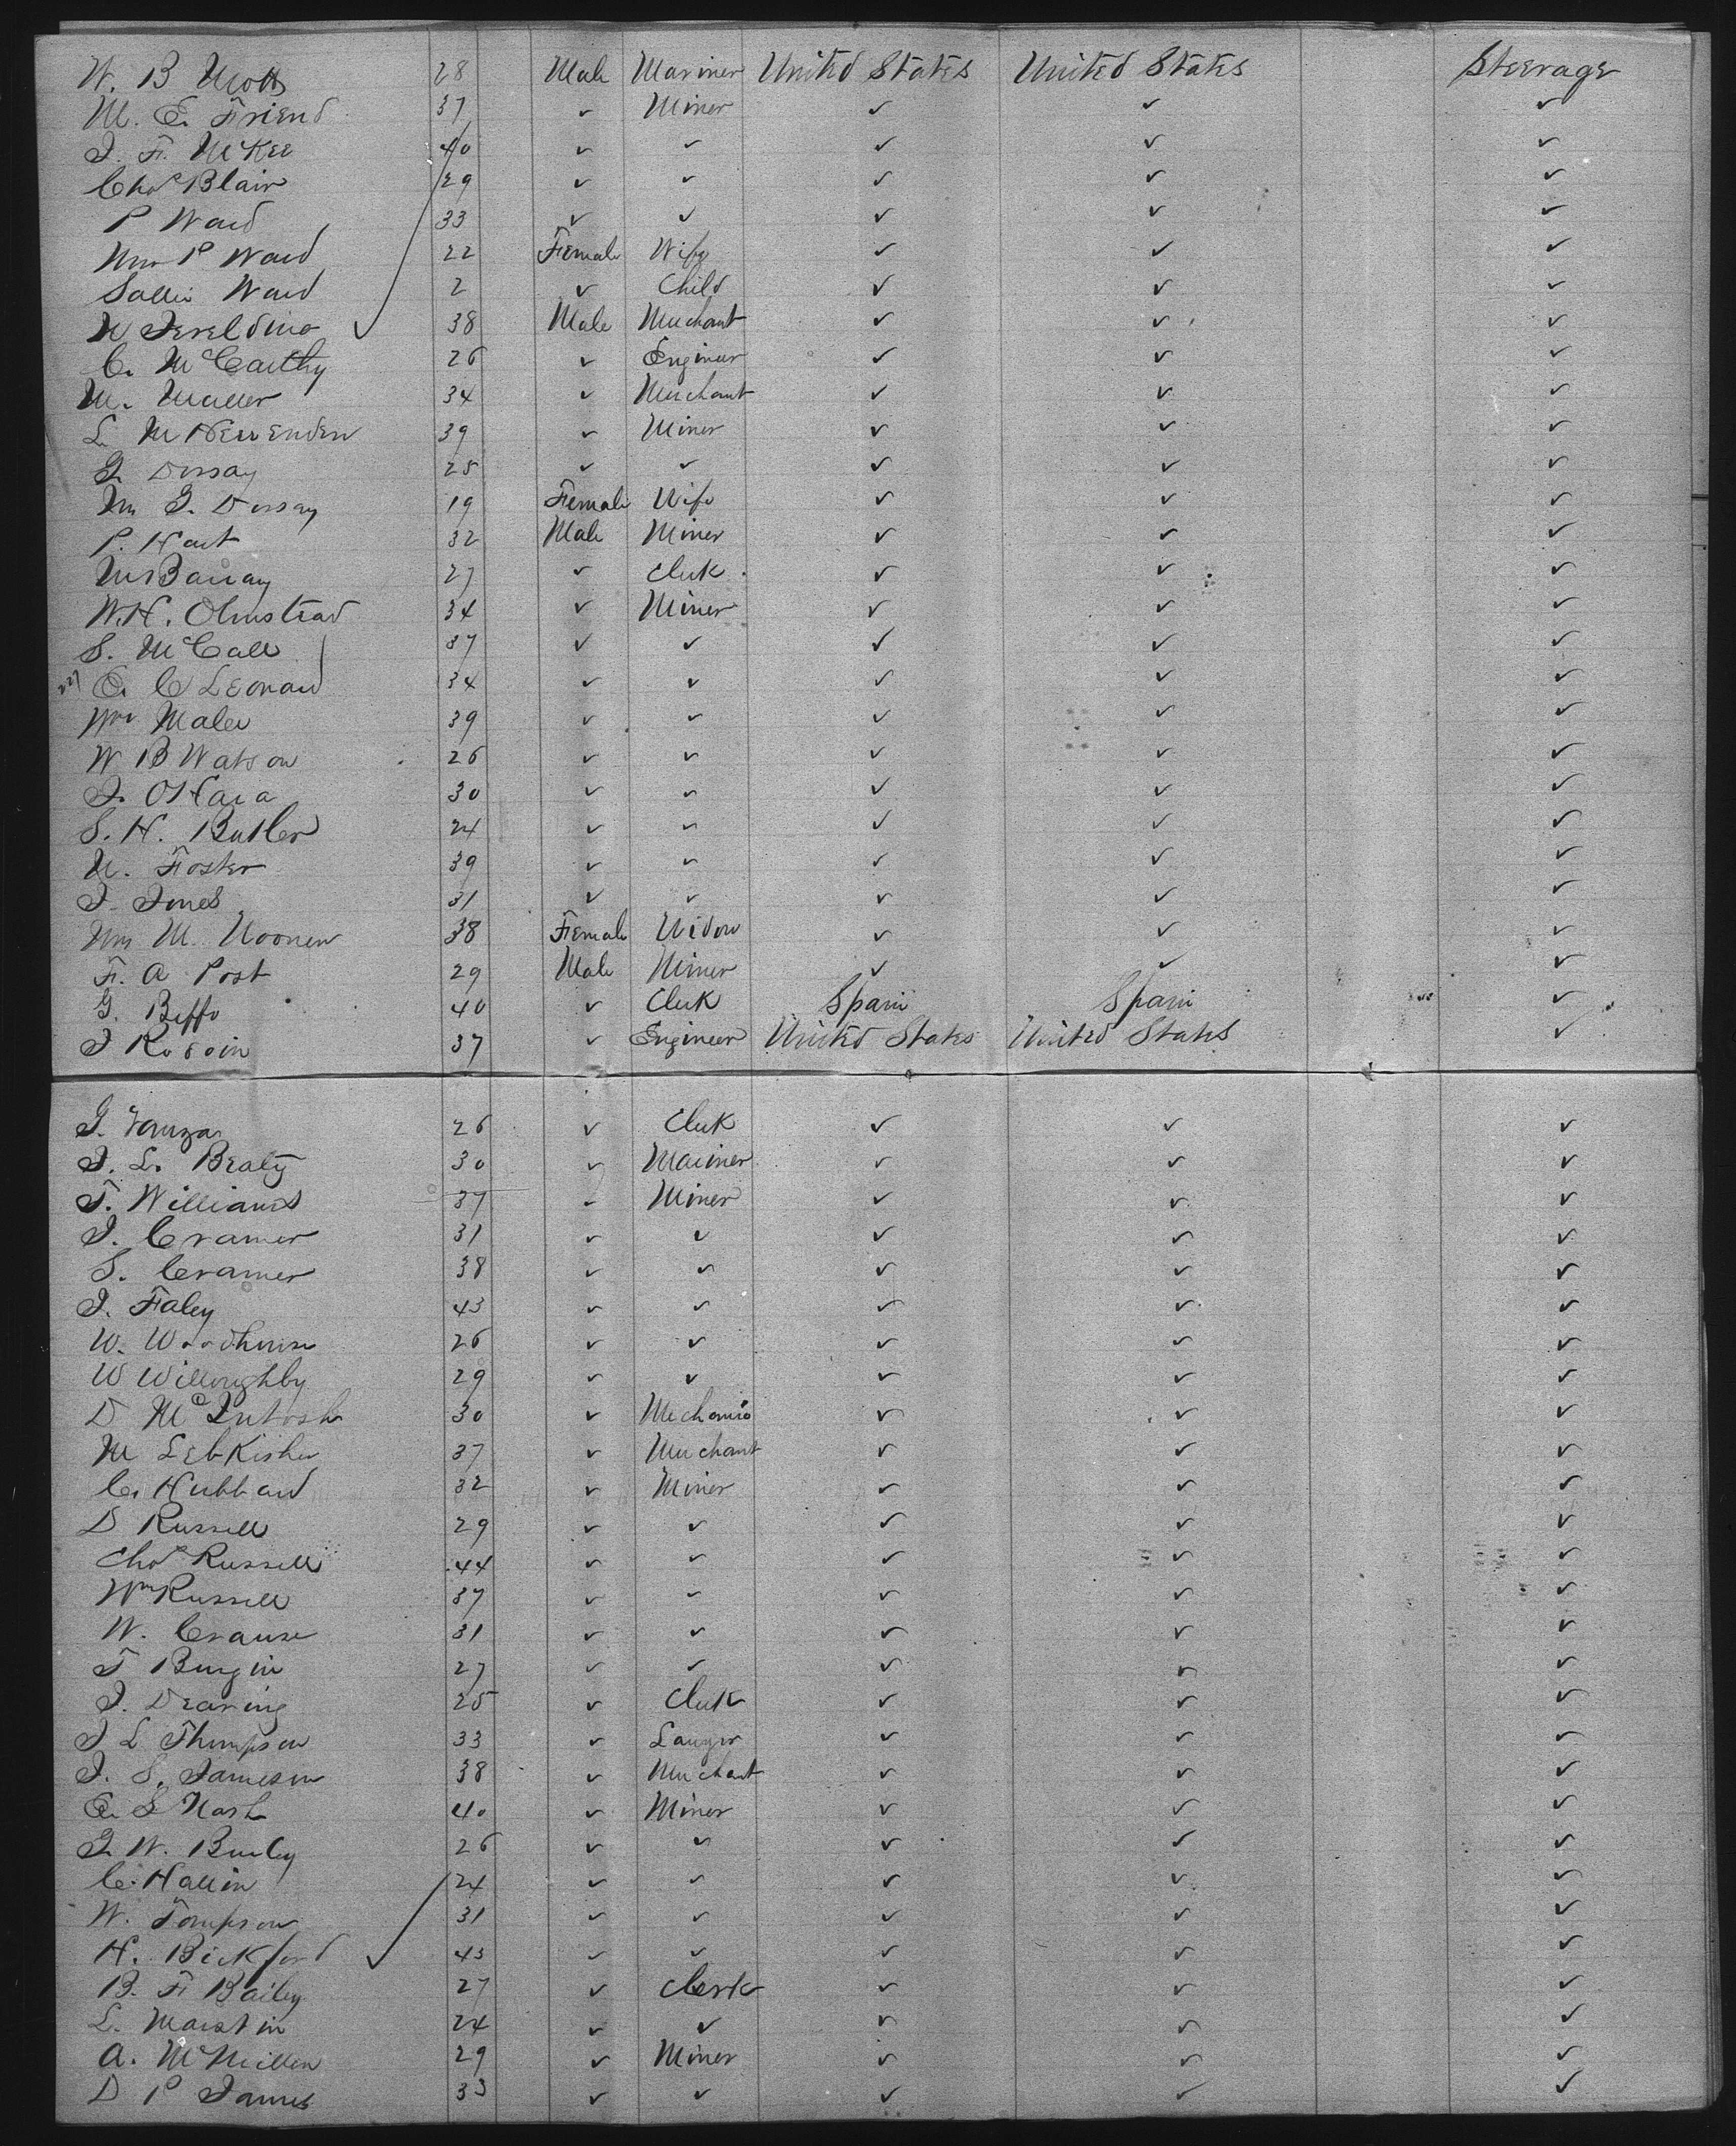 W. B Motts 28 Male Mariner United States United States Steerage
M. E. Friend 37 ✓ Miner ✓ ✓ ✓
J. F. McKee 40 ✓ ✓ ✓ ✓ ✓
Chas Blair 29 ✓ ✓ ✓ ✓ ✓
P Ward 33 ✓ ✓ ✓ ✓ ✓
Mrs P Ward 22 Female Wife ✓ ✓ ✓
Sallie Ward 2 ✓ Child ✓ ✓ ✓
38 Male Merchant ✓ ✓ ✓
C. McCarthy 26 ✓ Engineer ✓ ✓ ✓
M. 34 ✓ Merchant ✓ ✓ ✓
L. M 39 ✓ Miner ✓ ✓ ✓
Dorsay 25 ✓ ✓ ✓ ✓ ✓
Mrs Dorsay 19 Female Wife ✓ ✓ ✓
P. Hart 32 Male Miner ✓ ✓ ✓
27 ✓ Clerk ✓ ✓ ✓
W. H. Olmstead 34 ✓ Miner ✓ ✓ ✓
S. McCall 37 ✓ ✓ ✓ ✓ ✓
227 O. C Leonard 34 ✓ ✓ ✓ ✓ ✓
Wm 39 ✓ ✓ ✓ ✓ ✓
W B Watson 26 ✓ ✓ ✓ ✓ ✓
J. OHara 30 ✓ ✓ ✓ ✓ ✓
S. H. Butler 24 ✓ ✓ ✓ ✓ ✓
Foster 39 ✓ ✓ ✓ ✓ ✓
J Jones 31 ✓ ✓ ✓ ✓ ✓
Mrs M. Noonen 38 Female Widow ✓ ✓ ✓
F. A Post 29 Male Miner ✓ ✓ ✓
G. 40 ✓ Clerk Spain Spain ✓
J 37 ✓ Engineer United States United States ✓
G. 26 ✓ Clerk ✓ ✓ ✓
J. L. Bealy 30 ✓ Mariner ✓ ✓ ✓
T. Williams 37 ✓ Miner ✓ ✓ ✓
J. Cramer 31 ✓ ✓ ✓ ✓ ✓
S. Cramer 38 ✓ ✓ ✓ ✓ ✓
J. Faley 43 ✓ ✓ ✓ ✓ ✓
W. Woodhouse 26 ✓ ✓ ✓ ✓ ✓
W Willoughby 29 ✓ ✓ ✓ ✓ ✓
D McIntosh 30 ✓ Mechanic ✓ ✓ ✓
M Lebkisher 37 ✓ Merchant ✓ ✓ ✓
C. Hubbard 32 ✓ Miner ✓ ✓ ✓
D Russell 29 ✓ ✓ ✓ ✓ ✓
Chas Russell 44 ✓ ✓ ✓ ✓ ✓
Wm Russell 37 ✓ ✓ ✓ ✓ ✓
W. Crause 31 ✓ ✓ ✓ ✓ ✓
T Burgin 27 ✓ ✓ ✓ ✓ ✓
J. Dearing 25 ✓ Clerk ✓ ✓ ✓
J L Thompson 33 ✓ Lawyer ✓ ✓ ✓
J. S. Jameson 38 ✓ Merchant ✓ ✓ ✓
Nash 40 ✓ Miner ✓ ✓ ✓
W. Burley 26 ✓ ✓ ✓ ✓ ✓
C. Hallin 24 ✓ ✓ ✓ ✓ ✓
W. Tompson 31 ✓ ✓ ✓ ✓ ✓
H. Bickford 43 ✓ ✓ ✓ ✓ ✓
B. F Bailey 27 ✓ Clerk ✓ ✓ ✓
L. Marstin 24 ✓ ✓ ✓ ✓ ✓
A. McMillen 29 ✓ Miner ✓ ✓ ✓
D P James 33 ✓ ✓ ✓ ✓ ✓